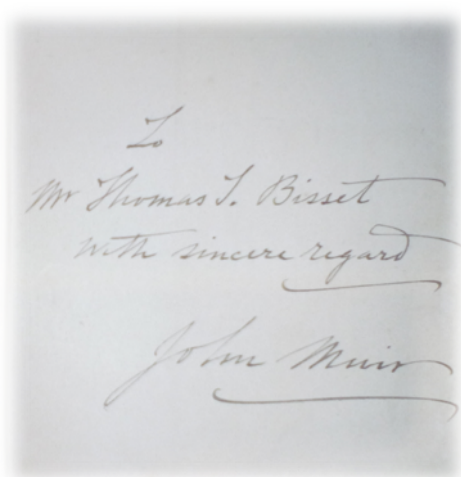 To
Mr Thomas S. Bisset
with sincere regard
John Muir